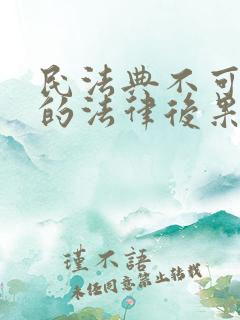 民法典不可
的法律後果
瑾不語
未经同意禁止转载